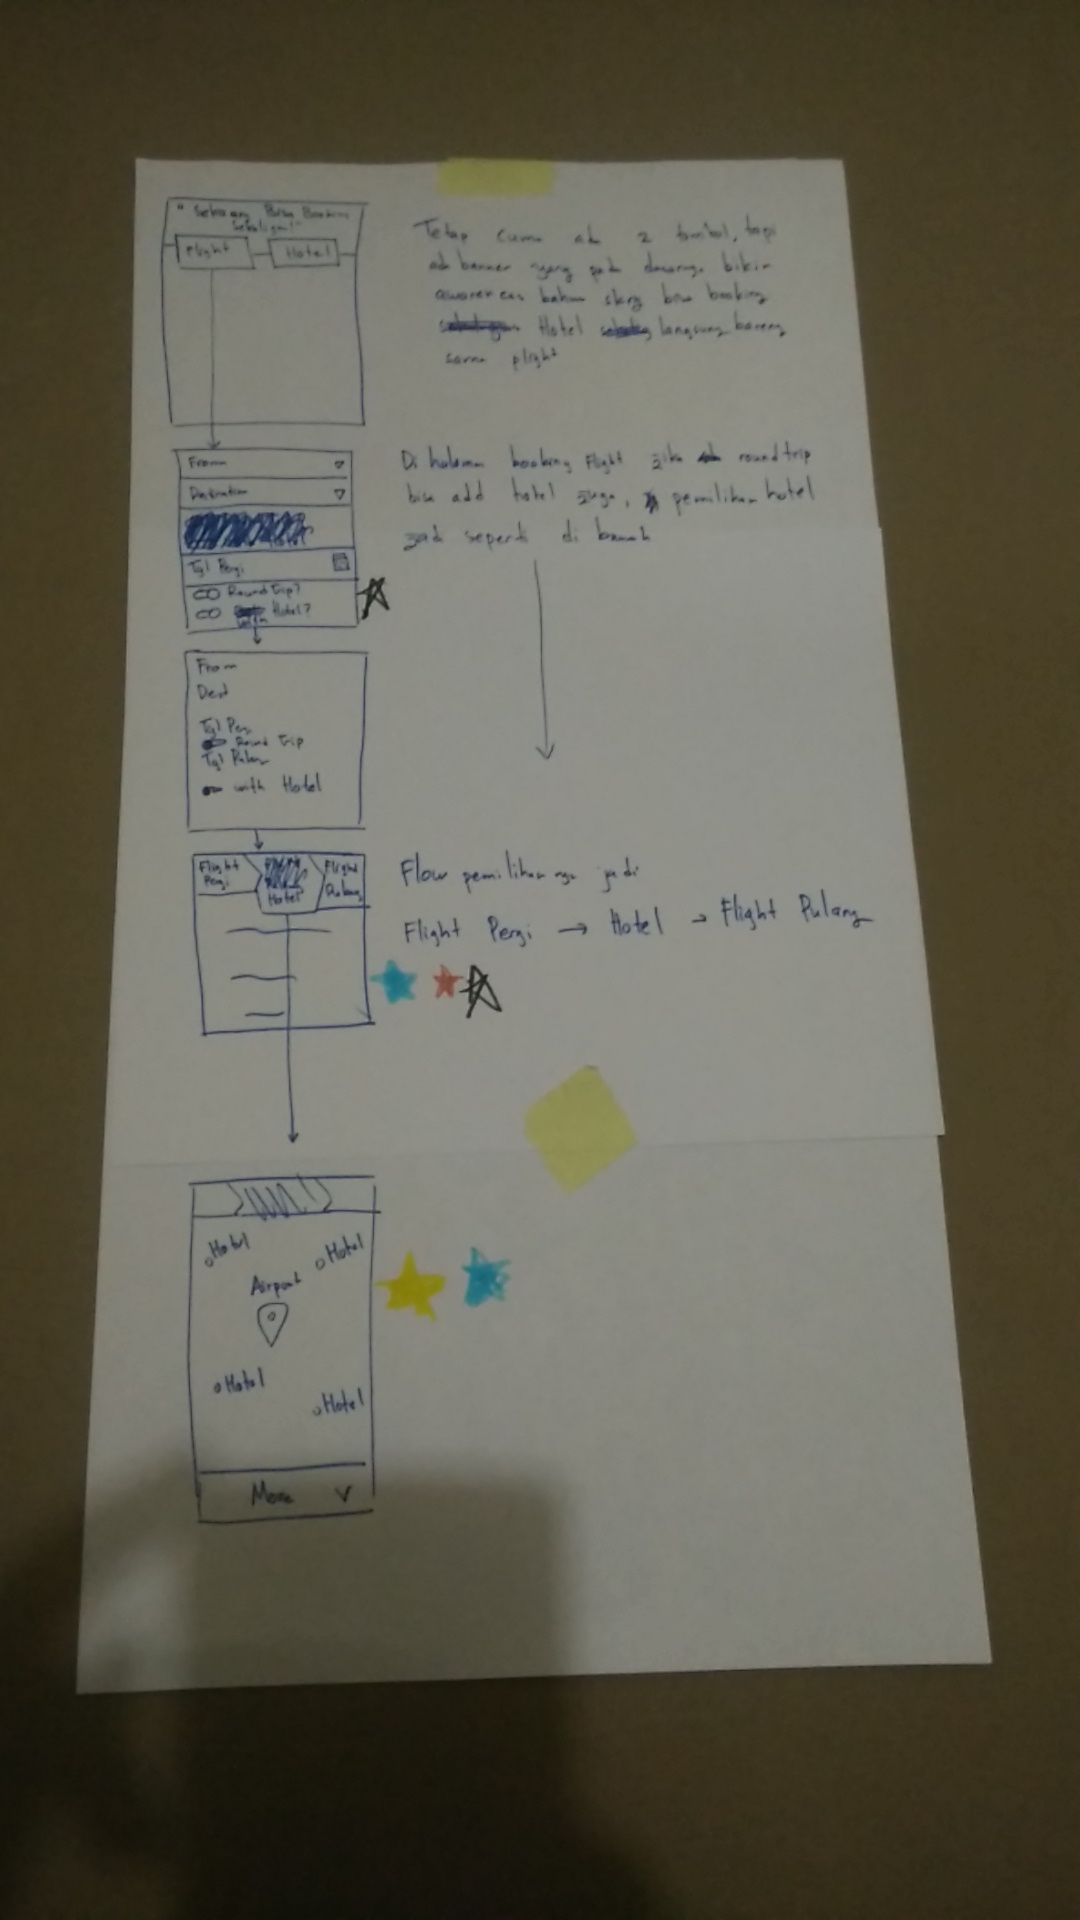 "Sekarang Bisa Booking
Sekaligus!"
Flight
Hotel
Tetap cuma ad 2 tombol, tapi
ad banner yang pada dasarnya bikin
awareness bahwa skrg bisa booking
Hotel langsung bareng
sama flight
From
Destination
Tgl Pergi
Round Trip?
Hotel?
Di halaman booking Flight jika round trip
bisa add hotel juga, pemilihan hotel
jadi seperti di bawah
From
Dest
Tgl Pergi
Round Trip
Tgl Pulang
with Hotel
Flight
Pergi
Hotel
Flight
Pulang
Flow pemilihannya jadi
Flight Pergi → Hotel → Flight Pulang
Hotel
Hotel
Airport
Hotel
Hotel